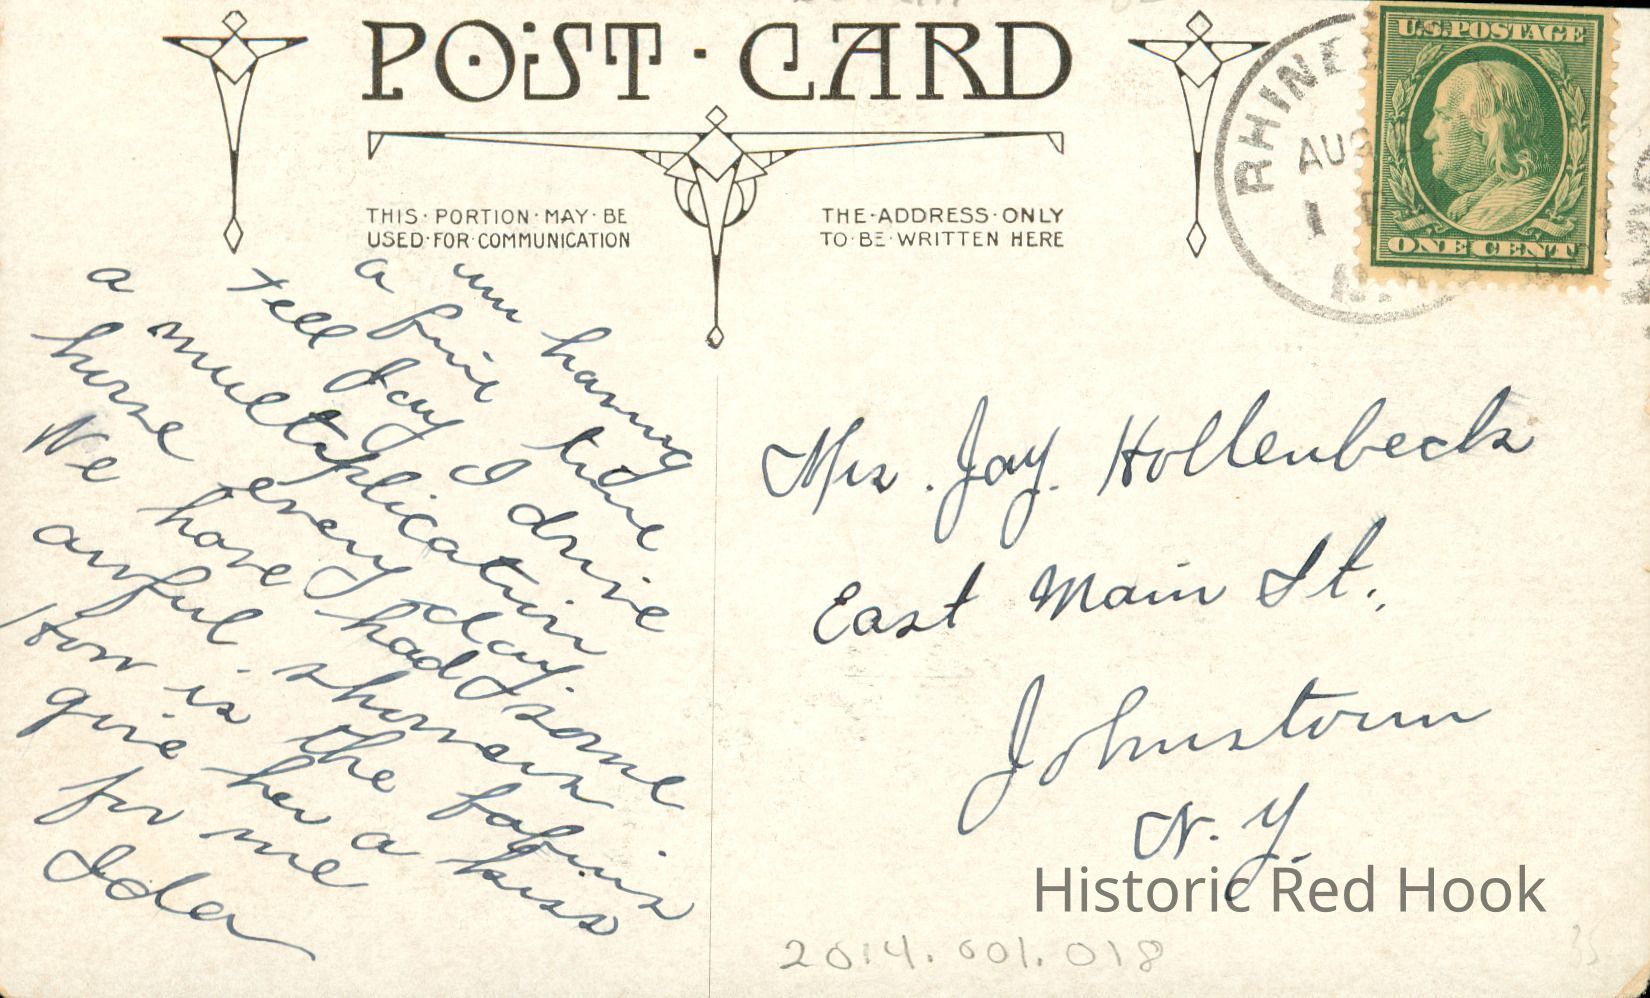 POST·CARD
THIS·PORTION·MAY·BE
USED·FOR·COMMUNICATION
THE·ADDRESS·ONLY
TO·BE·WRITTEN HERE
RHINE
AUG
1
N.Y.
U.S. POSTAGE
ONE CENT
am having
a fine time
tell Jay I drive
a multiplication
horse every day.
We have had some
awful showers
How is the babies
give her a kiss
for me
Ida
Mrs. Jay. Hollenbeck
East Main St.,
Johnstown
N. Y.
Historic Red Hook
2014.001.018
35